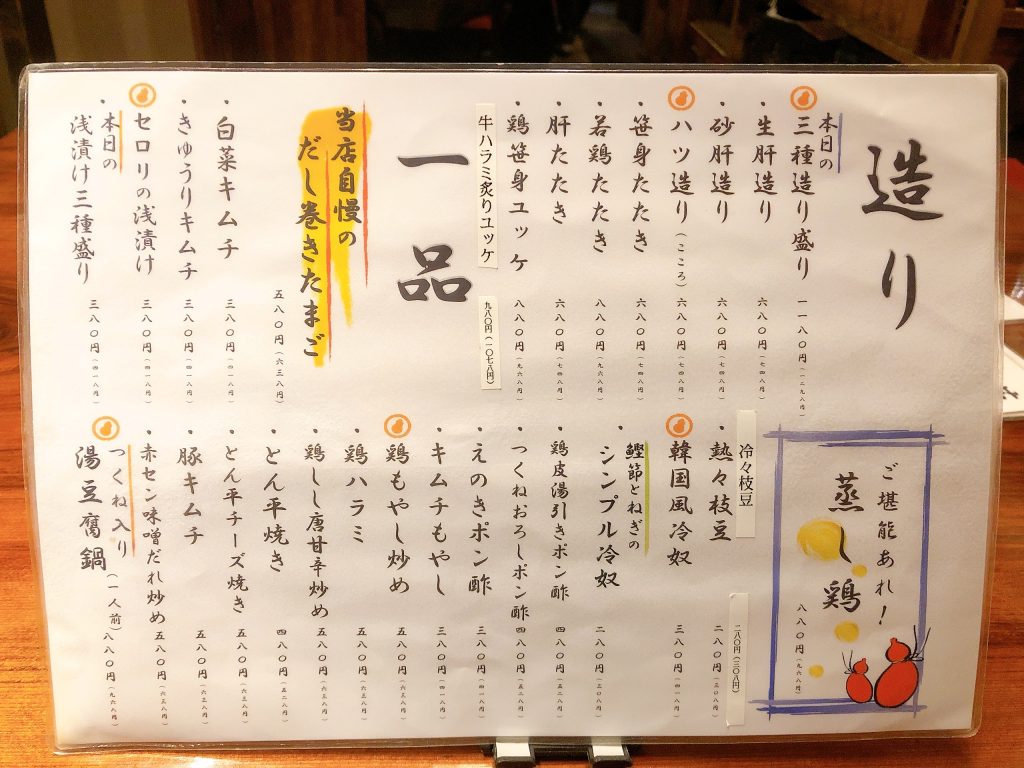 造り
本日の
三種造り盛り 一一八〇円(一二九八円)
・生肝造り 六八〇円(七四八円)
・砂肝造り 六八〇円(七四八円)
ハツ造り(こころ) 六八〇円(七四八円)
・笹身たたき 六八〇円(七四八円)
・若鶏たたき 八八〇円(九六八円)
・肝たたき 六八〇円(七四八円)
・鶏笹身ユッケ 八八〇円(九六八円)
牛ハラミ炙りユッケ 九八〇円(一〇七八円)
一品
当店自慢の
だし巻きたまご 五八〇円(六三八円)
・白菜キムチ 三八〇円(四一八円)
・きゅうりキムチ 三八〇円(四一八円)
セロリの浅漬け 三八〇円(四一八円)
・本日の
浅漬け三種盛り 三八〇円(四一八円)
ご堪能あれ!
蒸し鶏 八八〇円(九六八円)
冷々枝豆 二八〇円(三〇八円)
・熱々枝豆 二八〇円(三〇八円)
韓国風冷奴 三八〇円(四一八円)
・鰹節とねぎの
シンプル冷奴 二八〇円(三〇八円)
・鶏皮湯引きポン酢 四八〇円(五二八円)
・つくねおろしポン酢 四八〇円(五二八円)
・えのきポン酢 三八〇円(四一八円)
・キムチもやし 三八〇円(四一八円)
鶏もやし炒め 五八〇円(六三八円)
・鶏ハラミ 五八〇円(六三八円)
・鶏しし唐甘辛炒め 五八〇円(六三八円)
・とん平焼き 四八〇円(五二八円)
・とん平チーズ焼き 五八〇円(六三八円)
・豚キムチ 五八〇円(六三八円)
・赤セン味噌だれ炒め 五八〇円(六三八円)
つくね入り
湯豆腐鍋(一人前) 八八〇円(九六八円)